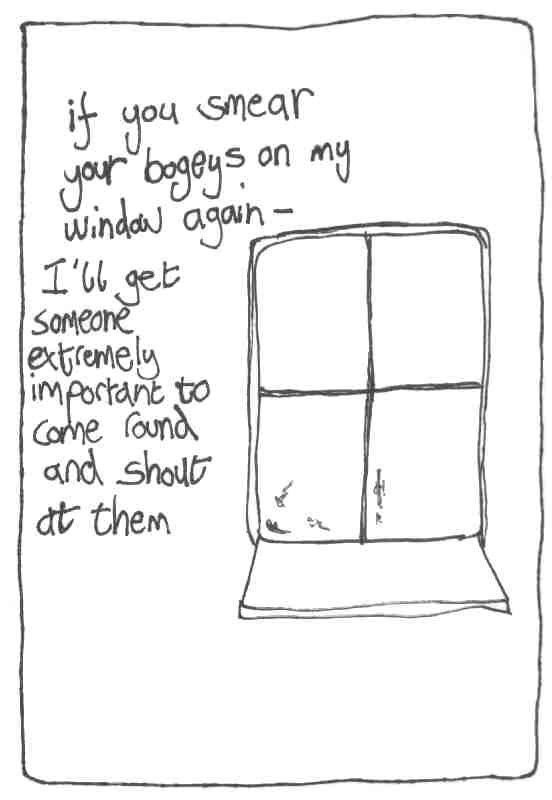 if you smear
your bogeys on my
window again -
I'll get
someone
extremely
important to
come round
and shout
at them